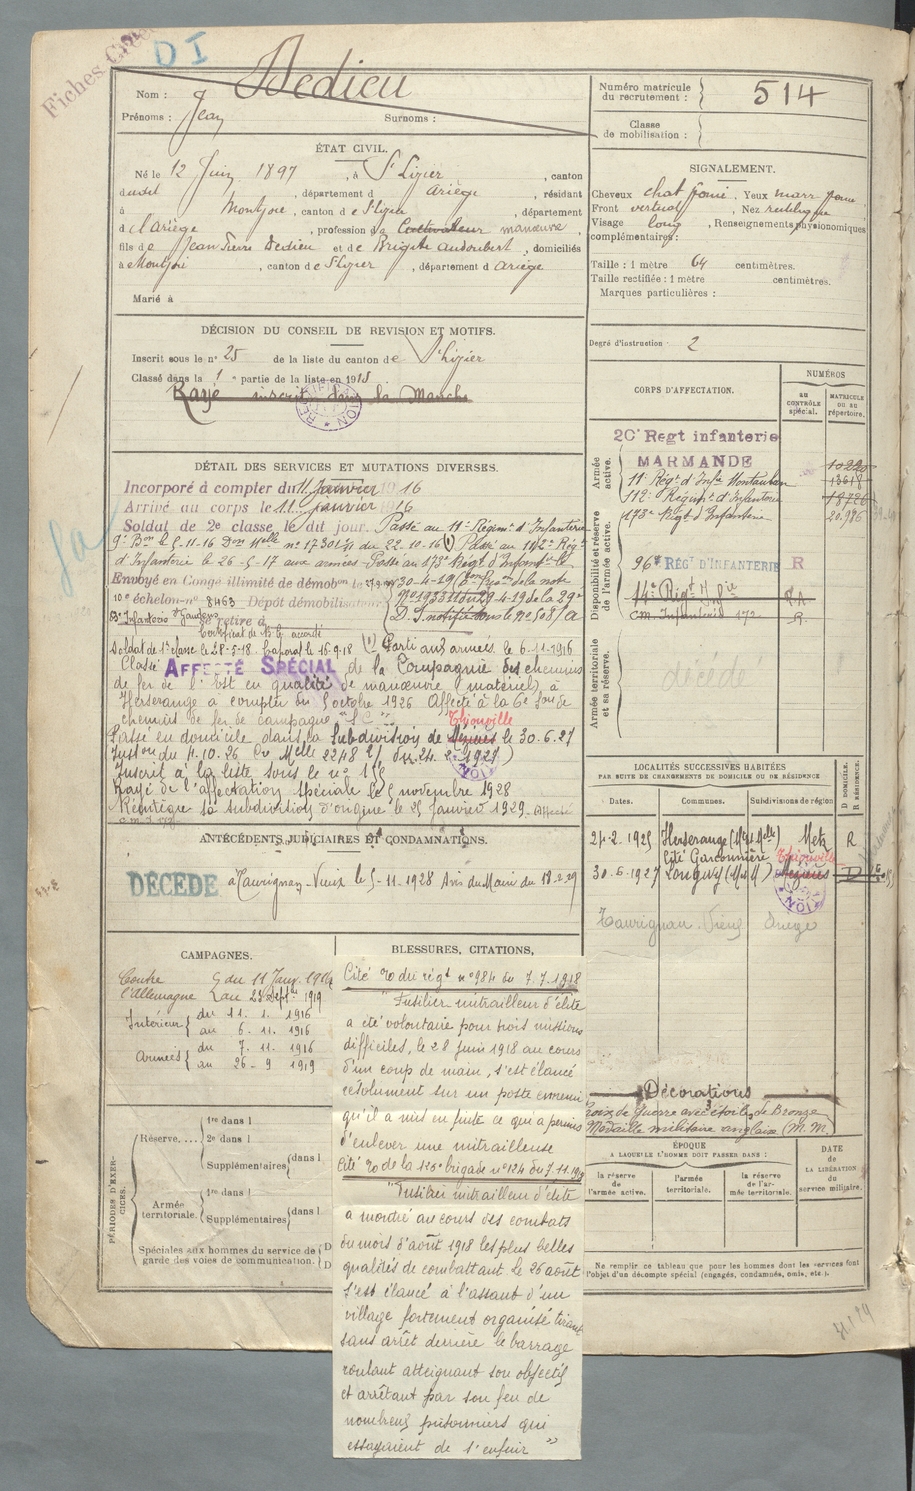 Fiches
DI
Nom : Dedieu
Prénoms : Jean Surnoms :
Numéro matricule du recrutement : 514
Classe de mobilisation :
ÉTAT CIVIL.
Né le 12 Juin 1897, à St Lizier, canton
dudit, département d Ariège, résidant
à Montjoie, canton de St Lizier, département
de l'Ariège, profession de Cultivateur manœuvre,
fils de Jean Pierre Dedieu et de Brigitte Audoubert, domiciliés
à Montjoie, canton de St Lizier, département d Ariège
Marié à
SIGNALEMENT.
Cheveux chat foncé. Yeux marr foncé,
Front vertical, Nez rectiligne
Visage long, Renseignements physionomiques
complémentaires :
Taille : 1 mètre 64 centimètres.
Taille rectifiée : 1 mètre centimètres.
Marques particulières :
Degré d'instruction 2
DÉCISION DU CONSEIL DE REVISION ET MOTIFS.
Inscrit sous le n° 25 de la liste du canton de St Lizier
Classé dans la 1e partie de la liste en 1915
Rayé inscrit dans la Manche
CORPS D'AFFECTATION.
NUMÉROS
au CONTRÔLE spécial.
MATRICULE ou au répertoire.
Armée active.
20e Regt infanterie
MARMANDE 10220
11e Régt d'Infie Montauban 13618
112e Régiment d'Infanterie 18726
173e Régt d'Infanterie 20.986
Disponibilité et réserve de l'armée active.
96e RÉGt D'INFANTERIE R
14e Régt d'Infie
C.M. Infanterie 172 R.
Armée territoriale et sa réserve.
décédé
DÉTAIL DES SERVICES ET MUTATIONS DIVERSES.
Incorporé à compter du 11 Janvier 1916
Arrivé au corps le 11 Janvier 1916
Soldat de 2e classe le dit jour. Passé au 11e Régiment d'Infanterie
9e Bon le 5-11-16 Don Melle n° 17301 du 22-10-16 (1) Passé au 112e Régt
d'Infanterie le 26-5-17 aux armées - Passé au 173e Régt d'Infantie le
Envoyé en Congé illimité de démobon le
10e échelon n° 8463 Dépôt démobilisateur
Infanterie St Gaudens se retire à
Certificat de B.C. accordé
Soldat de 1e classe le 28-5-18. Caporal le 16-9-18 (1) Parti aux armées le 6-11-1916
Classé AFFECTÉ SPÉCIAL de la Compagnie des chemins
de fer de l'Est en qualité de manœuvre (matériel) à
Herserange à compter du 5 octobre 1926 Affecté à la 6e Son de
chemins de fer de campagne
Thionville
Passé en domicile dans la Subdivision de Mézières le 30.6.27
Inston du 4.10.26
Inscrit à la liste sous le n°
Rayé de l'affectation spéciale le 5 novembre 1928
Réintègre sa subdivision d'origine le 25 Janvier 1929. Affecté
LOCALITÉS SUCCESSIVES HABITÉES
PAR SUITE DE CHANGEMENTS DE DOMICILE OU DE RÉSIDENCE
D DOMICILE. R RÉSIDENCE.
Dates. Communes. Subdivisions de région
24-2-1925 Herserange (Mthe et Melle) Metz R
Cité Garconnière Thionville
30-6-1927 Longwy (M et M) Mézières D
Taurignan-Vieux Ariège
ANTÉCÉDENTS JUDICIAIRES ET CONDAMNATIONS.
DÉCÉDÉ à Taurignan-Vieux le 5-11-1928 Avis du Maire du 18-2-29
CAMPAGNES.
Contre l'Allemagne du 11 Janv. 1916 au 25 Septe 1919
Intérieur du 11. 1. 1916
au 6. 11. 1916
Armées du 7. 11. 1916
au 26 - 9 1919
BLESSURES, CITATIONS,
Cité 20 du régt n° 984 du 7.7.1918
"Fusilier mitrailleur d'élite
a été volontaire pour trois missions
difficiles, le 28 Juin 1918 au cours
d'un coup de main, s'est élancé
résolument sur un poste ennemi
qu'il a mis en fuite ce qui a permis
d'enlever une mitrailleuse
Cité 20 de la 125e brigade n° 124 du 7.11.19
"Fusilier mitrailleur d'élite
a montré au cours des combats
du mois d'août 1918 les plus belles
qualités de combattant le 26 août
s'est élancé à l'assaut d'un
village fortement organisé tirant
sans arrêt derrière le barrage
roulant atteignant son objectif
et arrêtant par son feu de
nombreux prisonniers qui
essayaient de s'enfuir"
Décorations
Croix de Guerre avec étoiles de Bronze
Médaille militaire anglaise (M.M)
PÉRIODES D'EXERCICES.
Réserve..... 1re dans l
2e dans l
Supplémentaires dans l
Armée territoriale. 1re dans l
Supplémentaires dans l
Spéciales aux hommes du service de garde des voies de communication. D
D
ÉPOQUE
A LAQUELLE L'HOMME DOIT PASSER DANS :
la réserve de l'armée active.
l'armée territoriale.
la réserve de l'armée territoriale.
DATE de LA LIBÉRATION du service militaire.
Ne remplir ce tableau que pour les hommes dont les services font l'objet d'un décompte spécial (engagés, condamnés, omis, etc.).